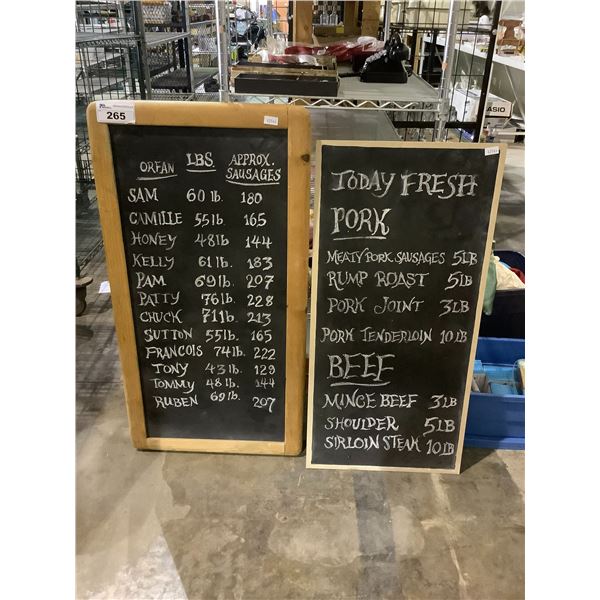 265
ORFAN LBS APPROX. SAUSAGES
SAM 60 lb. 180
CAMILLE 55lb. 165
HONEY 48lb. 144
KELLY 61 lb. 183
PAM 69lb. 207
PATTY 76lb. 228
CHUCK 71lb. 213
SUTTON 55lb. 165
FRANCOIS 74lb. 222
TONY 43lb. 129
TOMMY 48lb. 144
RUBEN 69lb. 207
TODAY FRESH
PORK
MEATY PORK SAUSAGES 5LB
RUMP ROAST 5lB
PORK JOINT 3LB
PORK TENDERLOIN 10LB
BEEF
MINCE BEEF 3LB
SHOULDER 5LB
SIRLOIN STEAK 10LB